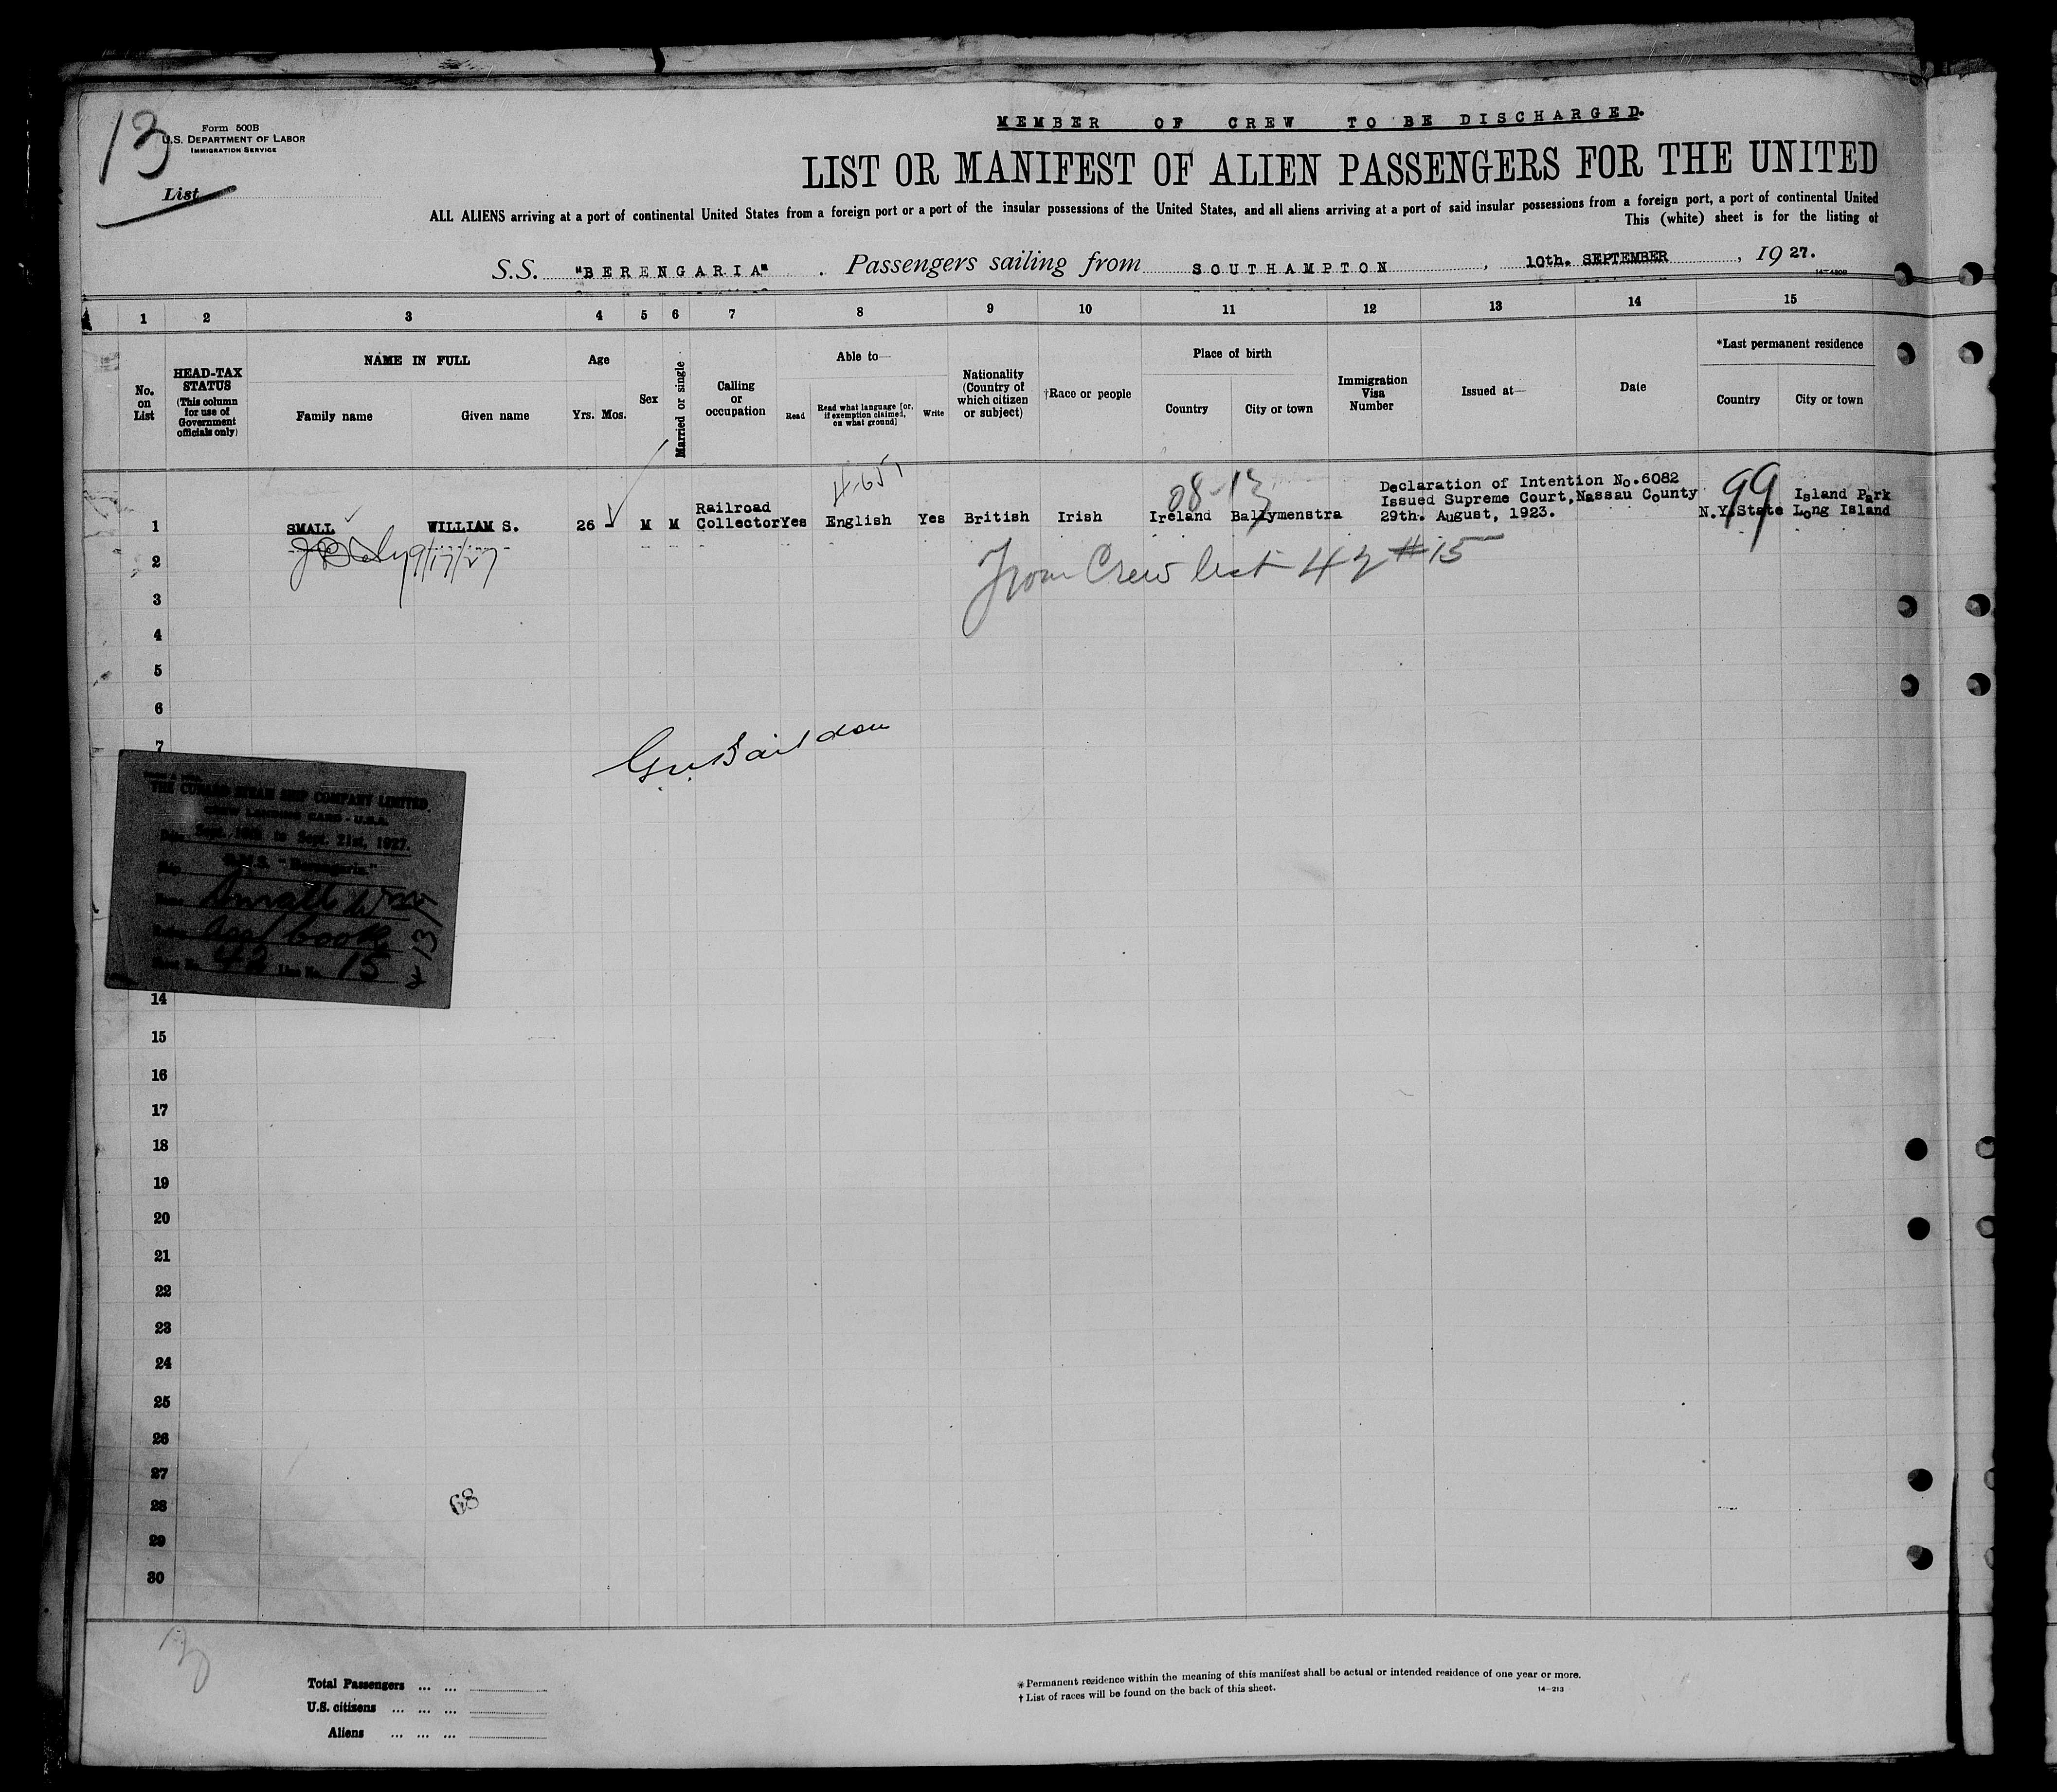 13
Form 500B
U.S. DEPARTMENT OF LABOR
IMMIGRATION SERVICE
List
MEMBER OF CREW TO BE DISCHARGED.
LIST OR MANIFEST OF ALIEN PASSENGERS FOR THE UNITED
ALL ALIENS arriving at a port of continental United States from a foreign port or a port of the insular possessions of the United States, and all aliens arriving at a port of said insular possessions from a foreign port, a port of continental United
This (white) sheet is for the listing of
S.S. "BERENGARIA". Passengers sailing from SOUTHAMPTON, 10th. SEPTEMBER, 1927.
1 2 3 4 5 6 7 8 9 10 11 12 13 14 15
No. on List
HEAD-TAX STATUS (This column for use of Government officials only)
NAME IN FULL
Family name Given name
Age
Yrs. Mos.
Sex
Married or single
Calling or occupation
Able to—
Read
Read what language [or, if exemption claimed, on what ground]
Write
Nationality (Country of which citizen or subject)
†Race or people
Place of birth
Country City or town
Immigration Visa Number
Issued at—
Date
*Last permanent residence
Country City or town
4-651
08-13
99
1 SMALL WILLIAM S. 26 M M Railroad Collector Yes English Yes British Irish Ireland Ballymenstra
Declaration of Intention No.6082
Issued Supreme Court, Nassau County
29th. August, 1923.
N.Y.State Island Park Long Island
9/17/27
From Crew list 42 #15
2
3
4
5
6
7
THE CUNARD STEAM SHIP COMPANY LIMITED.
CREW LANDING CARD - U.S.A.
Date Sept. 16th to Sept. 21st, 1927.
Ship R.M.S. "Berengaria"
Name Small Wm
Asst Cook
Sheet No. 42 Line No. 15
14
15
16
17
18
19
20
21
22
23
24
25
26
27
28
29
30
68
Total Passengers ... ...
U.S. citizens ... ... ...
Aliens ... ... ...
* Permanent residence within the meaning of this manifest shall be actual or intended residence of one year or more.
† List of races will be found on the back of this sheet.
14—213